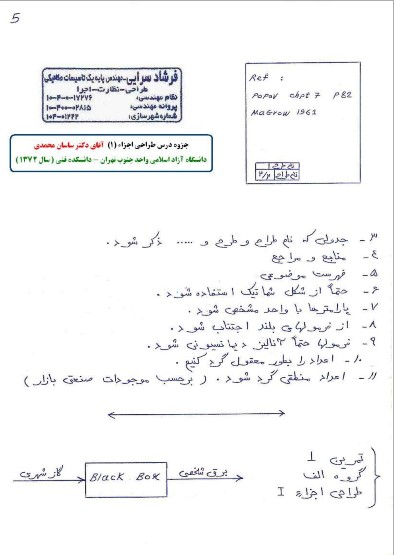 5
فرشاد سرایی-مهندس پایه یک تاسیسات مکانیکی
طراحی-نظارت-اجرا
نظام مهندسی: ۱۰-۴-۰۰-۱۷۲۷۶
پروانه مهندسی: ۱۰-۴۰۰-۰۲۸۱۵
شماره شهرسازی: ۱۰۴-۰۱۲۲۲
Ref :
POPOV chpt 7 P82
MaGrow 1963
جزوه درس طراحی اجزاء (۱) آقای دکتر ساسان محمدی
دانشگاه آزاد اسلامی واحد جنوب تهران - دانشکده فنی ( سال ۱۳۷۲ )
۳- جدولی که نام طراح و طرح و ..... ذکر شود.
۴- منابع و مراجع
۵- فهرست موضوعی
۶- حتماً از شکل شماتیک استفاده شود.
۷- پارامترها با واحد مشخص شود.
۸- از فرمولهای بلند اجتناب شود.
۹- فرمولها حتماً آنالیز دیمانسیونی شود.
۱۰- اعداد را بطور معقول گرد کنیم.
۱۱- اعداد منطقی گرد شود. ( برحسب موجودات صنعتی بازار )
تمرین 1
گروه الف
طراحی اجزاء I
گاز شهری
Black Box
برق شخصی